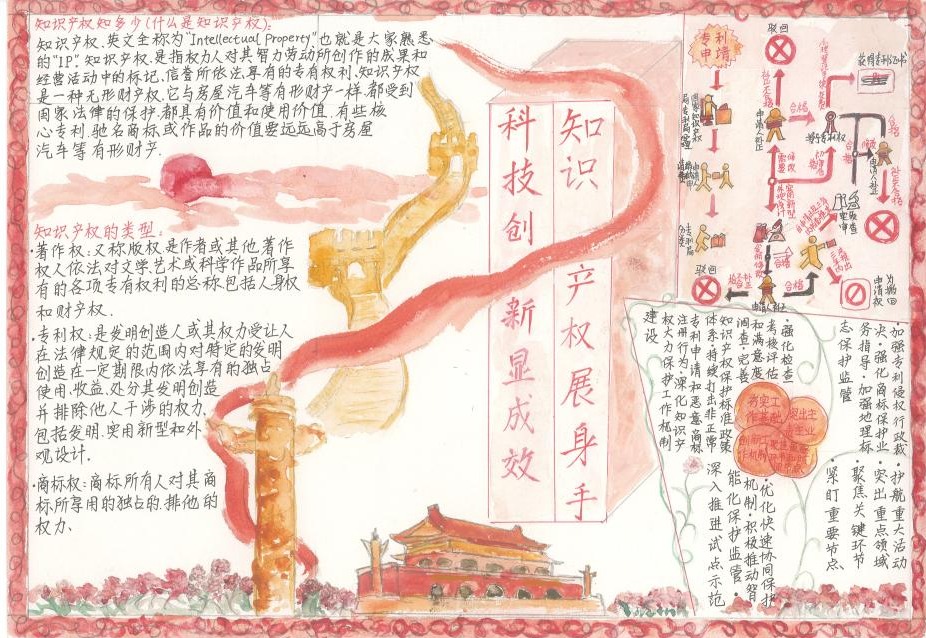 知识产权知多少(什么是知识产权):
知识产权,英文全称为"Intellectual Property"也就是大家熟悉
的"IP".知识产权.是指权力人对其智力劳动所创作的成果和
经营活动中的标记,信誉所依法享有的专有权利.知识产权
是一种无形财产权.它与房屋汽车等有形财产一样.都受到
国家法律的保护.都具有价值和使用价值.有些核
心专利.驰名商标或作品的价值要远远高于房屋
汽车等有形财产.
知识产权的类型:
·著作权:又称版权是作者或其他著作
权人依法对文学.艺术或科学作品所享
有的各项专有权利的总称.包括人身权
和财产权.
·专利权:是发明创造人或其权力受让人
在法律规定的范围内对特定的发明
创造在一定期限内依法享有的独占
使用.收益.处分其发明创造
并排除他人干涉的权力.
包括发明.实用新型和外
观设计.
·商标权:商标所有人对其商
标所享用的独占的.排他的
权力.
知识产权展身手
科技创新显成效
专利申请
驳回
获得专利证书
合格
申请人补正
授予专利权
合格
驳回
合格
申请人补正
·加强专利侵权行政裁
决·强化商标保护业
务指导·加强地理标
志保护监管
·强化检查
考核评估
和满意度
调查·完善
知识产权保护标准政策
体系·持续打击非正常
专利申请和恶意商标
注册行为·深化知识产
权大力保护工作机制
建设
夯实工
作基础
突出主
责主业
创新工
作机制
·护航重大活动
·突出重点领域
·聚焦关键环节
·紧盯重要节点
·优化快速协同保护
机制·积极推动智
能化保护监管·
深入推进试点示范